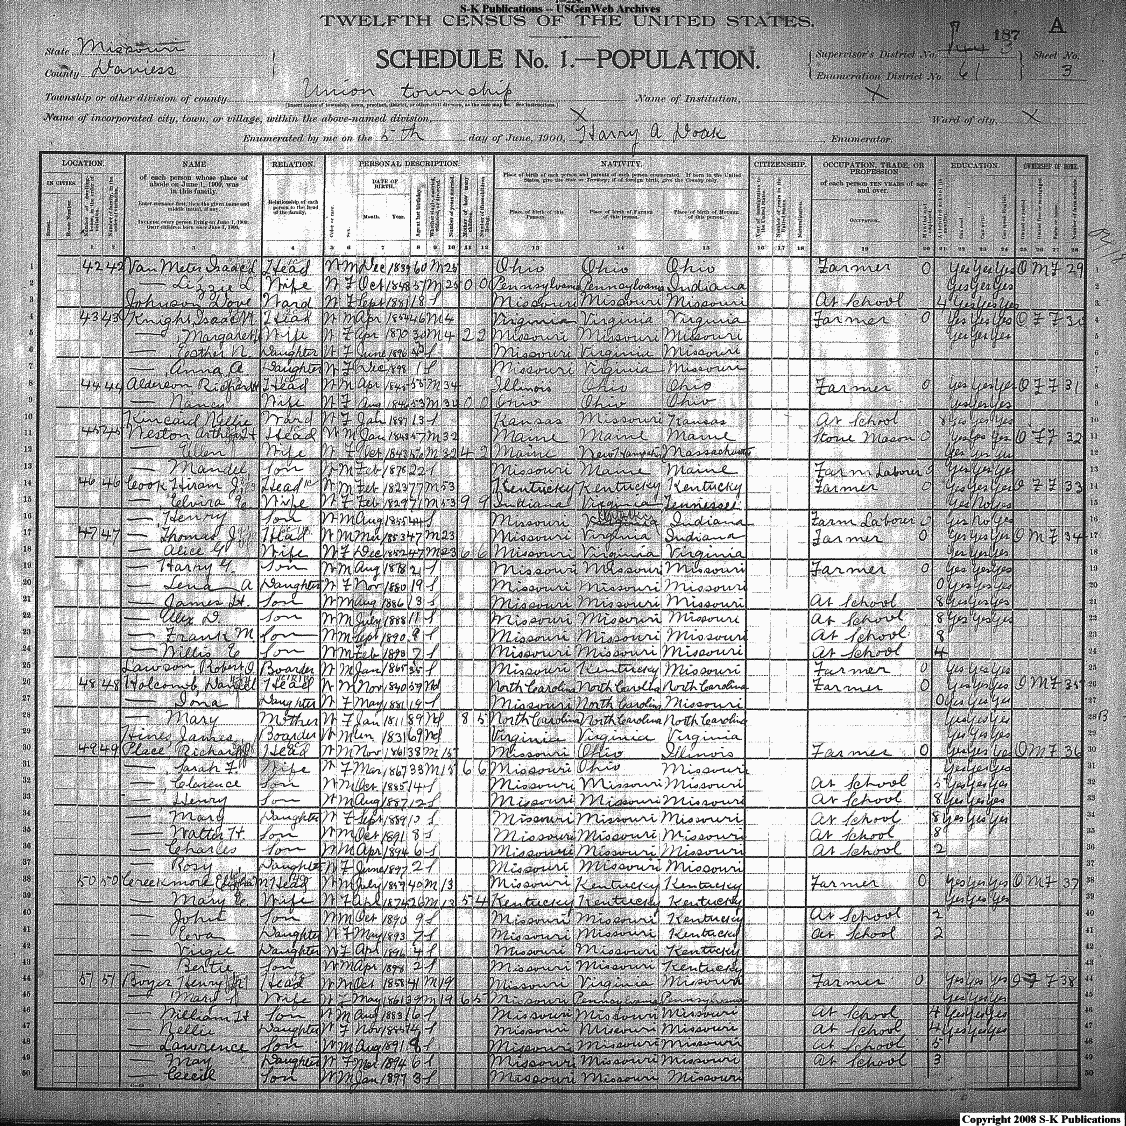 S-K Publications -- USGenWeb Archives
TWELFTH CENSUS OF THE UNITED STATES.
187 A
State Missouri
County Daviess
SCHEDULE No. 1.—POPULATION.
Supervisor's District No. 3
Enumeration District No. 61
Sheet No. 3
Township or other division of county Union township
Name of Institution, X
Name of incorporated city, town, or village, within the above-named division, X
Ward of city, X
Enumerated by me on the 5th day of June, 1900, Harry A Doak Enumerator.
LOCATION. NAME RELATION. PERSONAL DESCRIPTION. NATIVITY. CITIZENSHIP. OCCUPATION, TRADE, OR PROFESSION EDUCATION. OWNERSHIP OF HOME.
IN CITIES of each person whose place of abode on June 1, 1900, was in this family. Relationship of each person to the head of the family. DATE OF BIRTH. Month. Year. Place of birth of this Person. Place of birth of Father of this person. Place of birth of Mother of this person. of each person TEN YEARS of age and over. Occupation.
1 42 42 Van Meter Isaac Head W M Dec 1839 60 M 25 Ohio Ohio Ohio Farmer 0 Yes Yes Yes O M F 29
2 — Lizzie L Wife W F Oct 1848 M 25 0 0 Pennsylvania Pennsylvania Indiana Yes Yes Yes
3 Johnson Dove Ward W F Sept 1881 18 S Missouri Missouri Missouri At School 4 Yes Yes Yes
4 43 43 Knight Isaac N Head W M Apr 1854 46 M 4 Virginia Virginia Virginia Farmer 0 Yes Yes Yes O F F 30
5 — Margaret Wife W F Apr 1870 30 M 4 2 2 Missouri Missouri Missouri Yes Yes Yes
6 — Esther N. Daughter W F June 1896 3 S Missouri Virginia Missouri
7 — Anna A Daughter W F Dec 1898 1 S Missouri Virginia Missouri
8 44 44 Alderson Richard Head W M Apr 1845 55 M 34 Illinois Ohio Ohio Farmer 0 Yes Yes Yes O F F 31
9 — Nancy Wife W F Aug 1846 53 M 34 0 0 Ohio Ohio Ohio Yes Yes Yes
10 Kincaid Nellie Ward W F Jan 1887 13 S Kansas Missouri Kansas At School 8 Yes Yes Yes
11 45 45 Weston Arthur H Head W M Jan 1843 57 M 32 Maine Maine Maine Stone Mason 0 Yes Yes Yes O F F 32
12 — Ellen Wife W F Oct 1843 56 M 32 4 2 Maine New Hampshire Massachusetts Yes Yes Yes
13 — Mandel Son W M Feb 1878 22 S Missouri Maine Maine Farm Laborer Yes Yes Yes
14 46 46 Cook Hiram J Head W M Feb 1823 77 M 53 Kentucky Kentucky Kentucky Farmer 0 Yes Yes Yes O F F 33
15 — Elvira E Wife W F Feb 1829 71 M 53 9 9 Indiana Virginia Tennessee Yes No Yes
16 — Henry Son W M Aug 1855 44 S Missouri Indiana Farm Laborer 0 Yes No Yes
17 47 47 — Thomas J Head W M May 1853 47 M 23 Missouri Virginia Indiana Farmer 0 Yes Yes Yes O M F 34
18 — Alice G Wife W F Dec 1852 47 M 23 6 6 Missouri Virginia Virginia Yes Yes Yes
19 — Harry G. Son W M Aug 1878 21 S Missouri Missouri Missouri Farmer 0 Yes Yes Yes
20 — Lena A Daughter W F Nov 1880 19 S Missouri Missouri Missouri 0 Yes Yes Yes
21 — James H. Son W M Aug 1886 13 S Missouri Missouri Missouri At School 8 Yes Yes Yes
22 — Alex D. Son W M July 1888 11 S Missouri Missouri Missouri At School 8 Yes Yes Yes
23 — Frank M Son W M Sept 1890 9 S Missouri Missouri Missouri At School 8
24 — Willis E Son W M Feb 1893 7 S Missouri Missouri Missouri At School 4
25 Lawson Robert J Boarder W M Jan 1865 35 S Missouri Kentucky Missouri Farmer 0 Yes Yes Yes
26 48 48 Holcomb, Daniel Head W M Nov 1840 59 Wd North Carolina North Carolina North Carolina Farmer 0 Yes Yes Yes O M F 35
27 — Iona Daughter W F May 1881 19 S Missouri North Carolina Missouri 0 Yes Yes Yes
28 — Mary Mother W F Jan 1811 89 Wd 8 5 North Carolina North Carolina North Carolina Yes Yes Yes
29 Hines James Boarder W M Un 1831 69 Wd Virginia Virginia Virginia Yes Yes Yes
30 49 49 Place Richard Head W M Nov 1861 38 M 15 Missouri Ohio Illinois Farmer 0 Yes Yes Yes O M F 36
31 — Sarah F. Wife W F Mar 1867 33 M 15 6 6 Missouri Ohio Missouri Yes Yes Yes
32 — Clarence Son W M Oct 1885 14 S Missouri Missouri Missouri At School 5 Yes Yes Yes
33 — Henry Son W M Aug 1887 12 S Missouri Missouri Missouri At School 8 Yes Yes Yes
34 — Mary Daughter W F Sept 1889 10 S Missouri Missouri Missouri At School 8 Yes Yes Yes
35 — Walter H. Son W M Oct 1891 8 S Missouri Missouri Missouri At School 8
36 — Charles Son W M Apr 1894 6 S Missouri Missouri Missouri At School 2
37 — Rosy Daughter W F June 1897 2 S Missouri Missouri Missouri
38 50 50 Creekmore Head W M July 1859 40 M 13 Missouri Kentucky Kentucky Farmer 0 Yes Yes Yes O M F 37
39 — Mary E. Wife W F Apr 1874 26 M 13 5 4 Kentucky Kentucky Kentucky Yes Yes Yes
40 — John Son W M Oct 1890 9 S Missouri Missouri Kentucky At School 2
41 — Eva Daughter W F May 1893 7 S Missouri Missouri Kentucky At School 2
42 — Virgie Daughter W F Apr 1896 4 S Missouri Missouri Kentucky
43 — Bertie Son W M Apr 1898 2 S Missouri Missouri Kentucky
44 51 51 Boyer Henry Head W M Oct 1858 41 M 19 Missouri Virginia Missouri Farmer 0 Yes Yes Yes O F F 38
45 — Mary Wife W F May 1861 39 M 19 6 5 Missouri Pennsylvania Pennsylvania Yes Yes Yes
46 — William H Son W M Aug 1883 16 S Missouri Missouri Missouri At School 4 Yes Yes Yes
47 — Nellie Daughter W F Nov 1885 14 S Missouri Missouri Missouri At School 4 Yes Yes Yes
48 — Lawrence Son W M Aug 1891 8 S Missouri Missouri Missouri At School 5
49 — May Daughter W F Mar 1894 6 S Missouri Missouri Missouri At School 3
50 — Cecil Son W M Jan 1897 3 S Missouri Missouri Missouri
Copyright 2008 S-K Publications